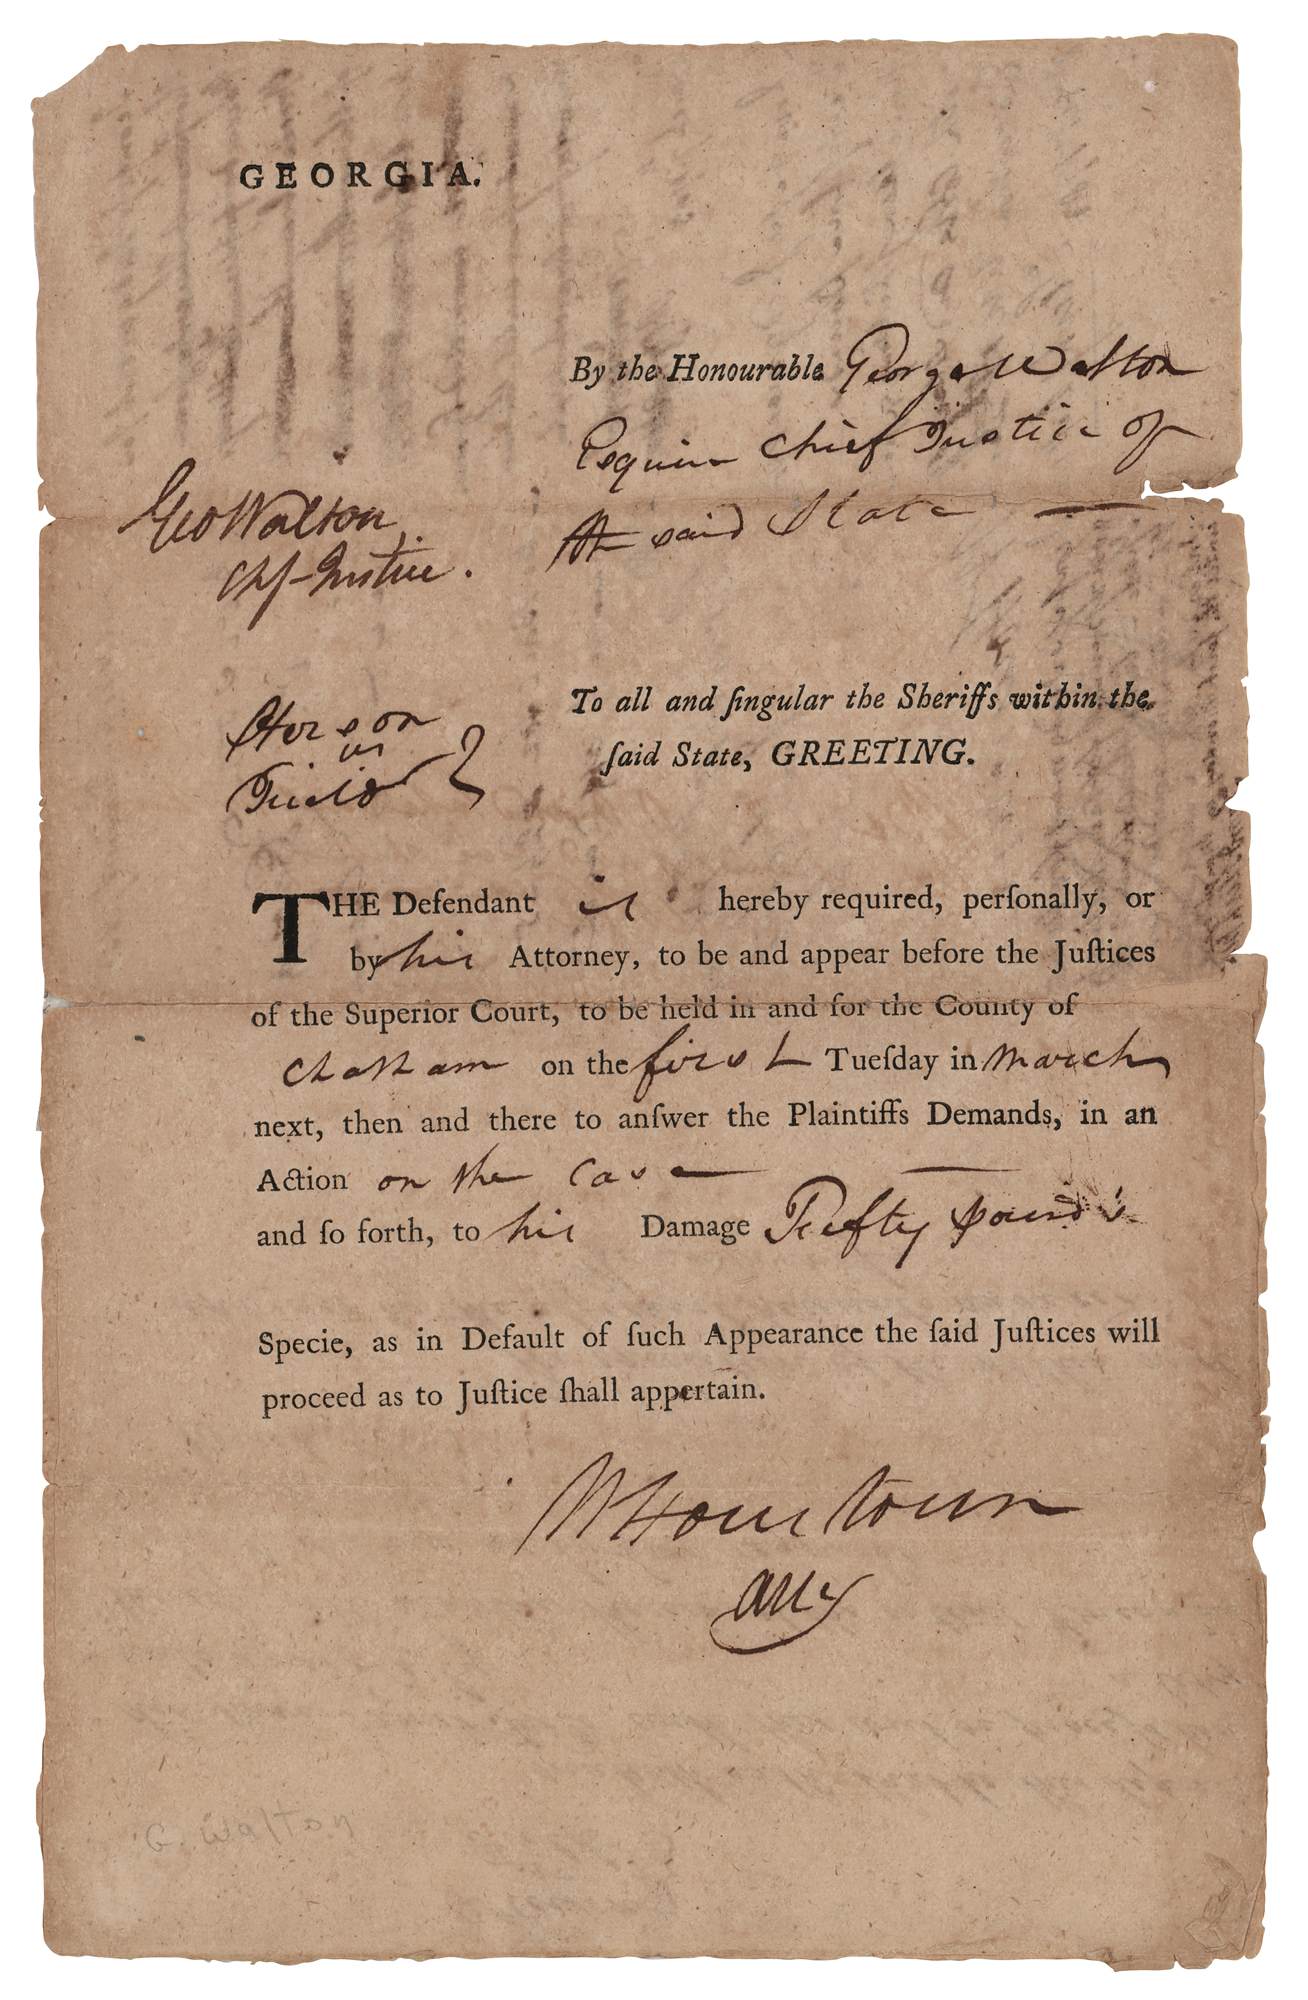 GEORGIA.
By the Honourable George Walton
Esquire Chief Justice of
the said State
Geo Walton
Chf-Justice.
To all and ſingular the Sheriffs within the
ſaid State, GREETING.
vs
Field
THE Defendant is hereby required, perſonally, or
by his Attorney, to be and appear before the Juſtices
of the Superior Court, to be held in and for the County of
Chatham on the first Tueſday in March
next, then and there to anſwer the Plaintiffs Demands, in an
Action on the case
and ſo forth, to his Damage Fifty pounds
Specie, as in Default of ſuch Appearance the ſaid Juſtices will
proceed as to Juſtice ſhall appertain.
Atty
G. Walton